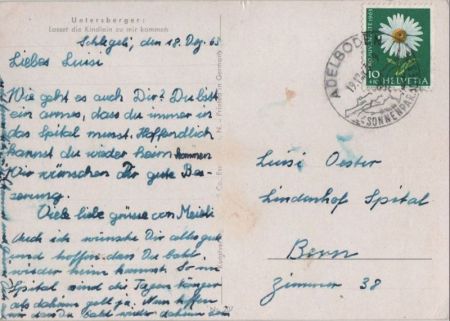 Untersberger:
Lasset die Kindlein zu mir kommen
Schlegeli, den 18. Dez. 63
Liebes Luisi
Wie geht es auch Dir? Du bist
ein armes, dass du immer in
das Spital musst. Hoffendlich
kannst du wieder heim kommen
Wir wünschen Dir gute Bes-
serung.
Viele liebe grüsse von Meieli
Auch ich wünsche Dir alles gute
und hoffen dass Du bald
wieder heim kannst. So im
Spital sind die Tagen länger
als daheim gell ja. Nun hoffen
wir dass Du bald wieder daheim
Printed in Germany
ADELBODEN
SONNENPLA
10
HELVETIA
PRO JUVENTUTE 1963
Luisi Oester
Lindenhof Spital
Bern
Zimmer 38